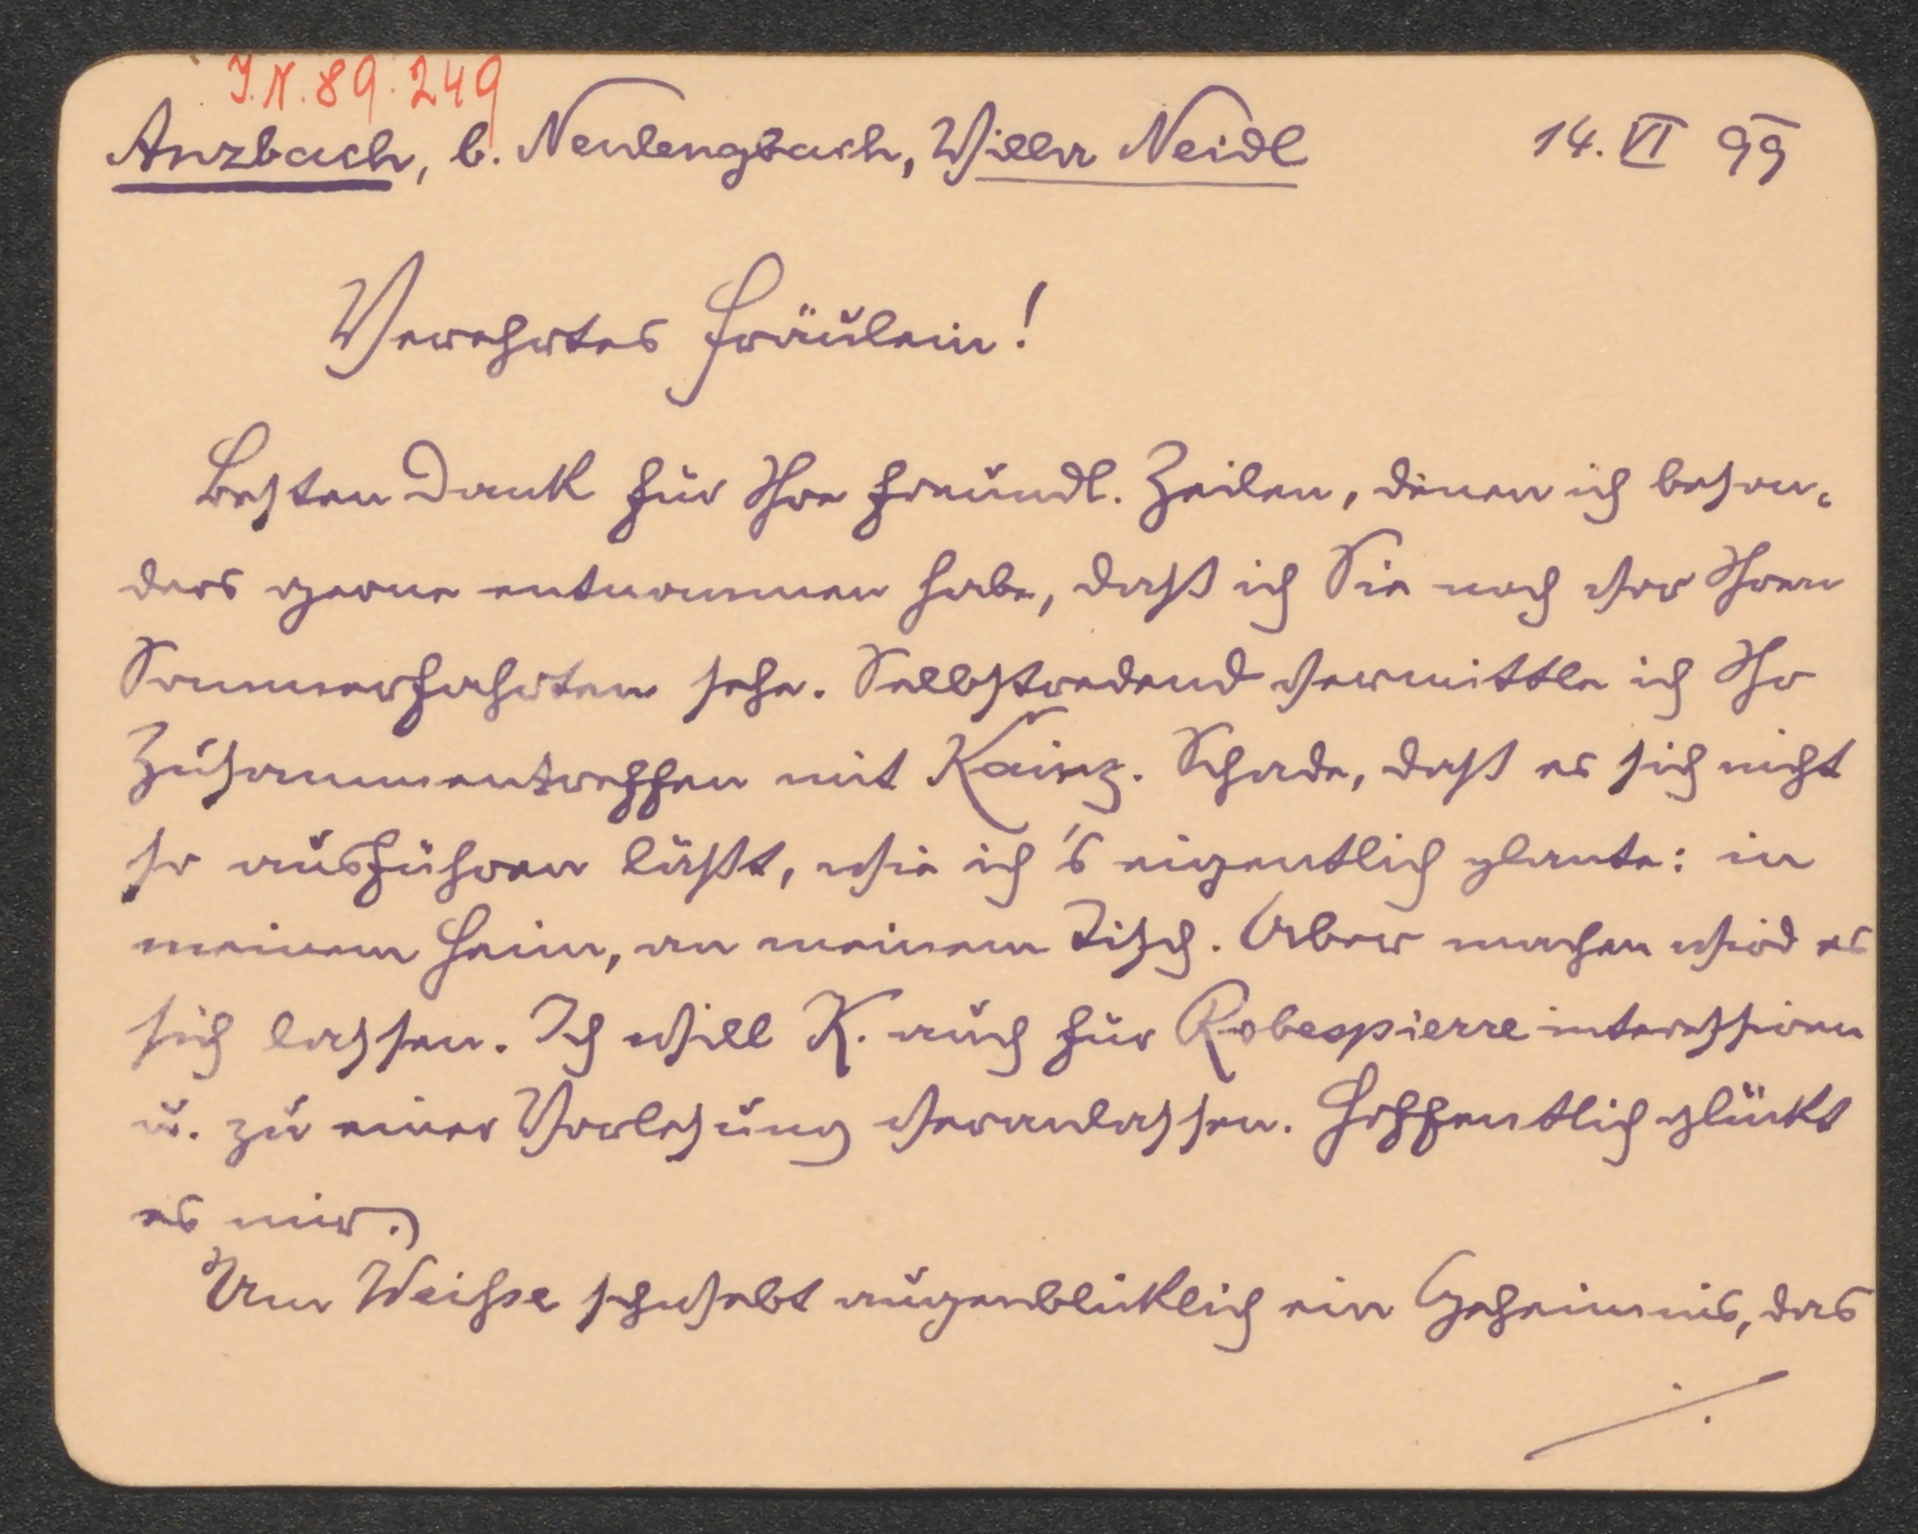 I.N. 89.249
Anzbach, b. Neulengbach, Villa Neidl 14. VI 99
Verehrtes Fräulein!
Besten Dank für Ihre freundl. Zeilen, denen ich beson-
ders gerne entnommen habe, daß ich Sie noch vor Ihren
Sommerfahrten sehe. Selbstredend vermittle ich Ihr
Zusammentreffen mit Kainz. Schade, daß es sich nicht
so ausführen läßt, wie ich's eigentlich plante: in
meinem Heim, an meinem Tisch. Aber machen wird es
sich lassen. Ich will K. auch für Robespierre interessiren
u. zu einer Vorlesung veranlassen. Hoffentlich glückt
es mir.
Um Weisse schwebt augenblicklich ein Geheimnis, das
./.